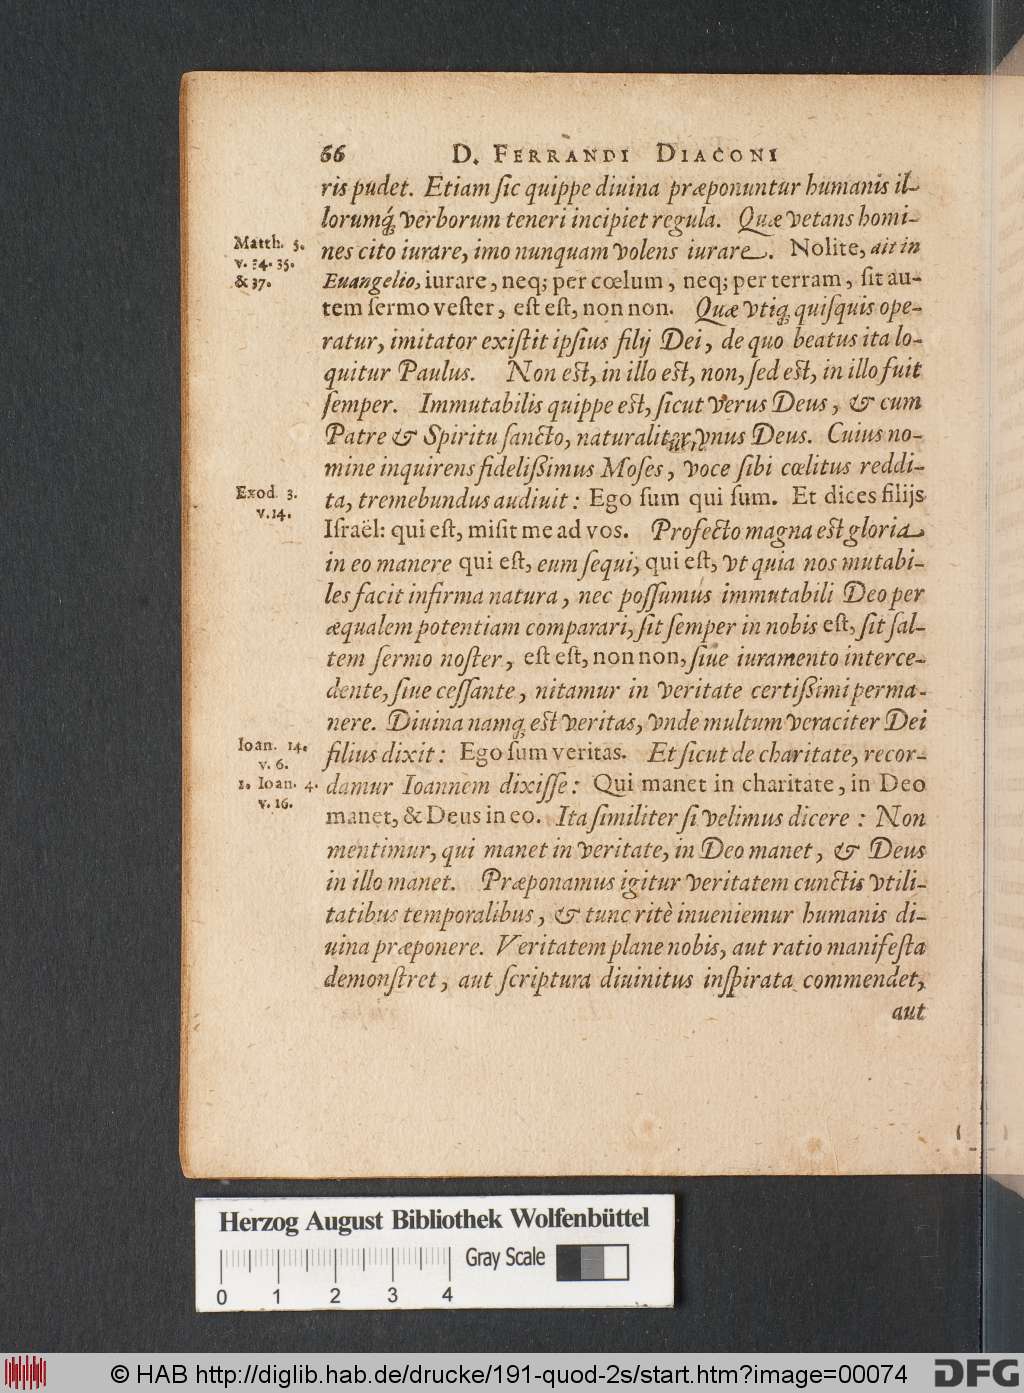 66 D. FERRANDI DIACONI
ris pudet. Etiam sic quippe diuina præponuntur humanis il-
lorumq́; verborum teneri incipiet regula. Quæ vetans homi-
Matth. 5.
v. 34. 35.
& 37.
nes cito iurare, imo nunquam volens iurare. Nolite, ait in
Euangelio, iurare, neq; per cœlum, neq; per terram, sit au-
tem sermo vester, est est, non non. Quæ vtiq; quisquis ope-
ratur, imitator existit ipsius filij Dei, de quo beatus ita lo-
quitur Paulus. Non est, in illo est, non, sed est, in illo fuit
semper. Immutabilis quippe est, sicut verus Deus, & cum
Patre & Spiritu sancto, naturaliter, vnus Deus. Cuius no-
mine inquirens fidelissimus Moses, voce sibi cœlitus reddi-
Exod. 3.
v. 14.
ta, tremebundus audiuit: Ego sum qui sum. Et dices filijs
Israël: qui est, misit me ad vos. Profecto magna est gloria
in eo manere qui est, eum sequi, qui est, vt quia nos mutabi-
les facit infirma natura, nec possumus immutabili Deo per
æqualem potentiam comparari, sit semper in nobis est, sit sal-
tem sermo noster, est est, non non, siue iuramento interce-
dente, siue cessante, nitamur in veritate certissimi perma-
nere. Diuina namq; est veritas, vnde multum veraciter Dei
Ioan. 14.
v. 6.
filius dixit: Ego sum veritas. Et sicut de charitate, recor-
1. Ioan. 4.
v. 16.
damur Ioannem dixisse: Qui manet in charitate, in Deo
manet, & Deus in eo. Ita similiter si velimus dicere: Non
mentimur, qui manet in veritate, in Deo manet, & Deus
in illo manet. Præponamus igitur veritatem cunctis vtili-
tatibus temporalibus, & tunc ritè inueniemur humanis di-
uina præponere. Veritatem plane nobis, aut ratio manifesta
demonstret, aut scriptura diuinitus inspirata commendet,
aut
Herzog August Bibliothek Wolfenbüttel
Gray Scale
0 1 2 3 4
© HAB http://diglib.hab.de/drucke/191-quod-2s/start.htm?image=00074
DFG